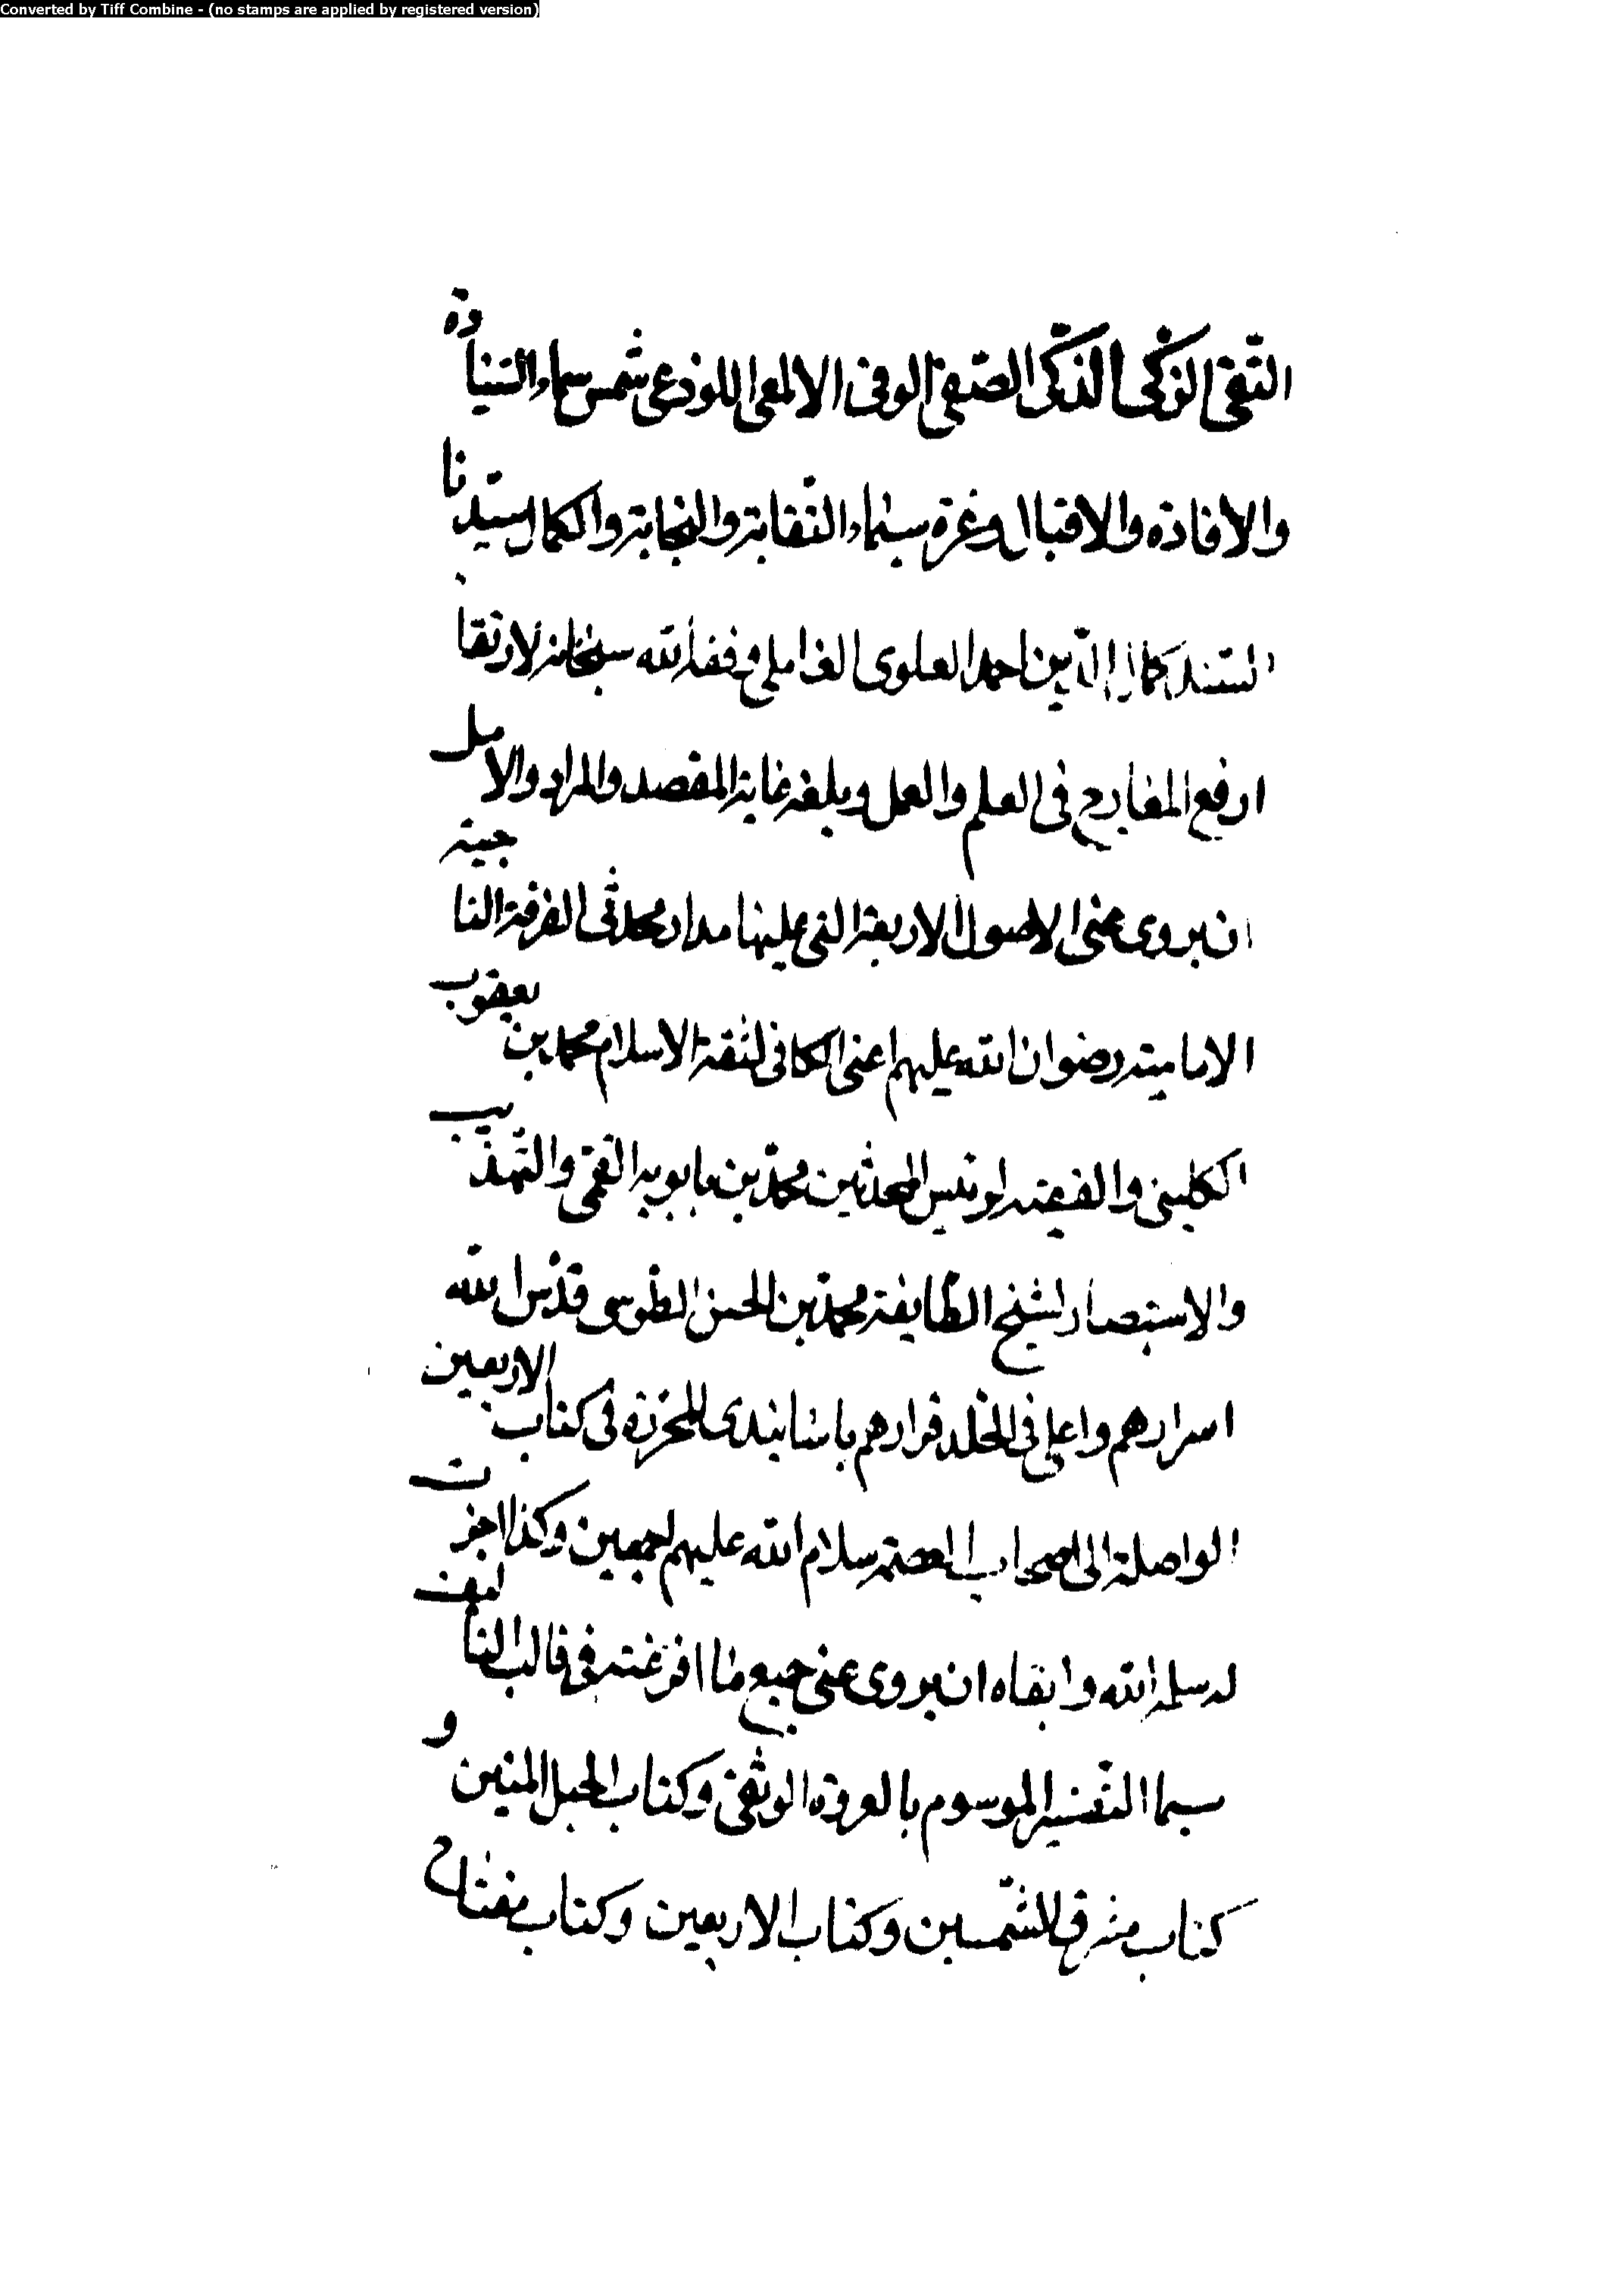 Converted by Tiff Combine - (no stamps are applied by registered version)
التقی الزکی الذکی الصفی الوفی الالمعی اللوذعی شمس سماء السیادة
والافادة والاقبال وغرة سیماء النقابة والنجابة والکمال سیدنا
السند کمال الدین احمد العلوی العاملی وفقه الله سبحانه لارتقاء
ارفع المعارج فی العلم والعمل وبلغه غایة المقصد والمراد والامل
ان یروی عنی الاصول الاربعة التی علیها مدار محدثی الفرقة الناجیة
الامامیة رضوان الله علیهم اعنی الکافی لثقة الاسلام محمد بن یعقوب
الکلینی والفقیه لرئیس المحدثین محمد بن بابویه القمی والتهذیب
والاستبصار لشیخ الطایفة محمد بن الحسن الطوسی قدس الله
اسرارهم واعلی فی الخلد قرارهم باسانیدی المحررة فی کتاب الاربعین
الواصلة الی اصحاب العصمة سلام الله علیهم اجمعین وکذا اجزت
له سلمه الله وابقاه ان یروی عنی جمیع ما افرغته فی قالب التالیف
سیما التفسیر الموسوم بالعروة الوثقی وکتاب الحبل المتین و
کتاب مشرق الشمسین وکتاب الاربعین وکتاب مفتاح